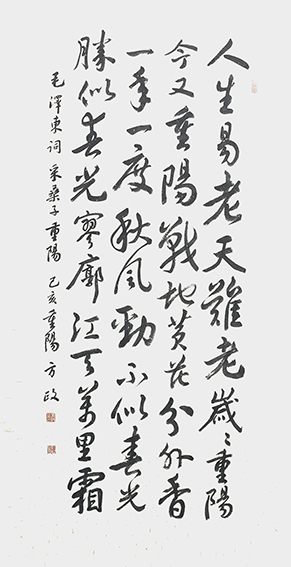 人生易老天難老歲〻重陽
今又重陽戰地黄花分外香
一年一度秋風勁不似春光
勝似春光寥廓江天萬里霜
毛澤東詞采桑子重陽 己亥重陽方政